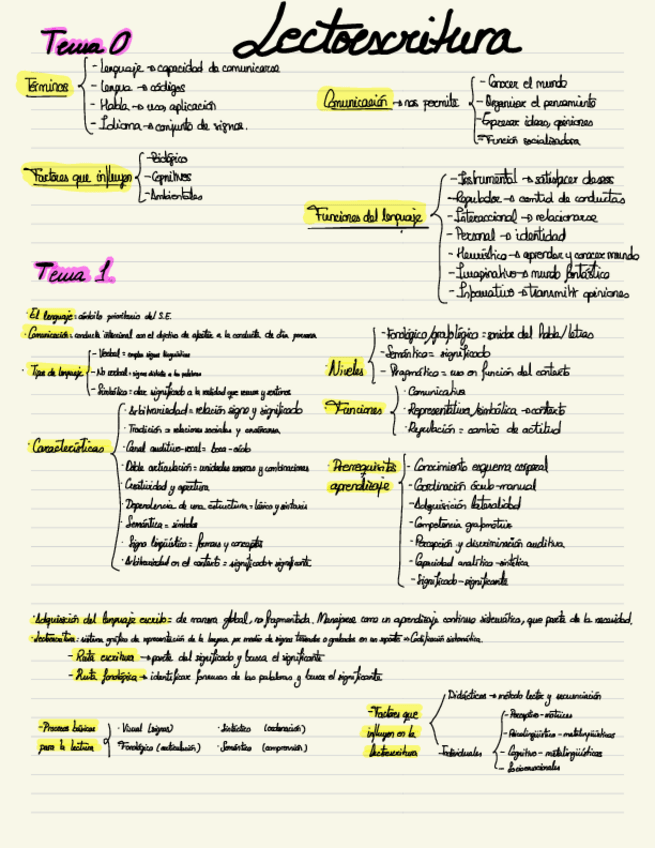 Lectoescritura
Tema 0
Términos
- Lenguaje → capacidad de comunicarse
- Lengua → códigos
- Habla → uso, aplicación
- Idioma → conjunto de signos.
Comunicación → nos permite
- Conocer el mundo
- Organizar el pensamiento
- Expresar ideas, opiniones
- Función socializadora
Factores que influyen
- Biológico
- Cognitivos
- Ambientales
Funciones del lenguaje
- Instrumental → satisfacer deseos
- Regulador → control de conductas
- Interaccional → relacionarse
- Personal → identidad
- Heurístico → aprender y conocer mundo
- Imaginativo → mundo fantástico
- Informativo → transmitir opiniones
Tema 1.
· El lenguaje: ámbito prioritario del S.E.
· Comunicación: conducta intencional con el objetivo de afectar a la conducta de otra persona
· Tipos de lenguaje
- Verbal = emplea signos lingüísticos
- No verbal = signos distintos a las palabras
- Simbólico = dar significado a la realidad que vemos y
Niveles
- Fonológico/grafológico = sonidos del habla/letras
- Semántico = significado
- Pragmático = uso en función del contexto
· Características
· Arbitrariedad = relación signo y significado
· Tradición = relaciones sociales y enseñanza
· Canal auditivo-vocal = boca-oído
· Doble articulación = unidades sonoras y combinaciones
· Creatividad y apertura
· Dependencia de una estructura = léxico y sintaxis
· Semántica = símbolos
· Signo lingüístico = formas y conceptos
· Arbitrariedad en el contexto = significado + significante
· Funciones
· Comunicativa
· Representativa/simbólica → contexto
· Regulación = cambio de actitud
· Prerrequisitos aprendizaje
- Conocimiento esquema corporal
- Coordinación óculo-manual
- Adquisición lateralidad
- Competencia grafomotriz
- Percepción y discriminación auditiva
- Capacidad analítico-sintética
- Significado-significante
· Adquisición del lenguaje escrito = de manera global, no fragmentada. Manejarse como un aprendizaje continuo sistemático, que parta de la necesidad.
· Lectoescritura: sistema gráfico de representación de la lengua por medio de signos trazados o grabados en un soporte → Codificación sistemática.
- Ruta escritura → parte del significado y busca el significante
- Ruta fonológica → identificar fonemas de las palabras y busca el significante
- Procesos básicos para la lectura
· Visual (signos)
· Fonológico (articulación)
· Sintáctico (ordenación)
· Semántico (comprensión)
- Factores que influyen en la lectoescritura
Didácticos → método lector y secuenciación
Individuales
- Perceptivo-motrices
- Psicolingüístico-metalingüísticas
- Cognitivo-metalingüísticas
- Socioemocionales